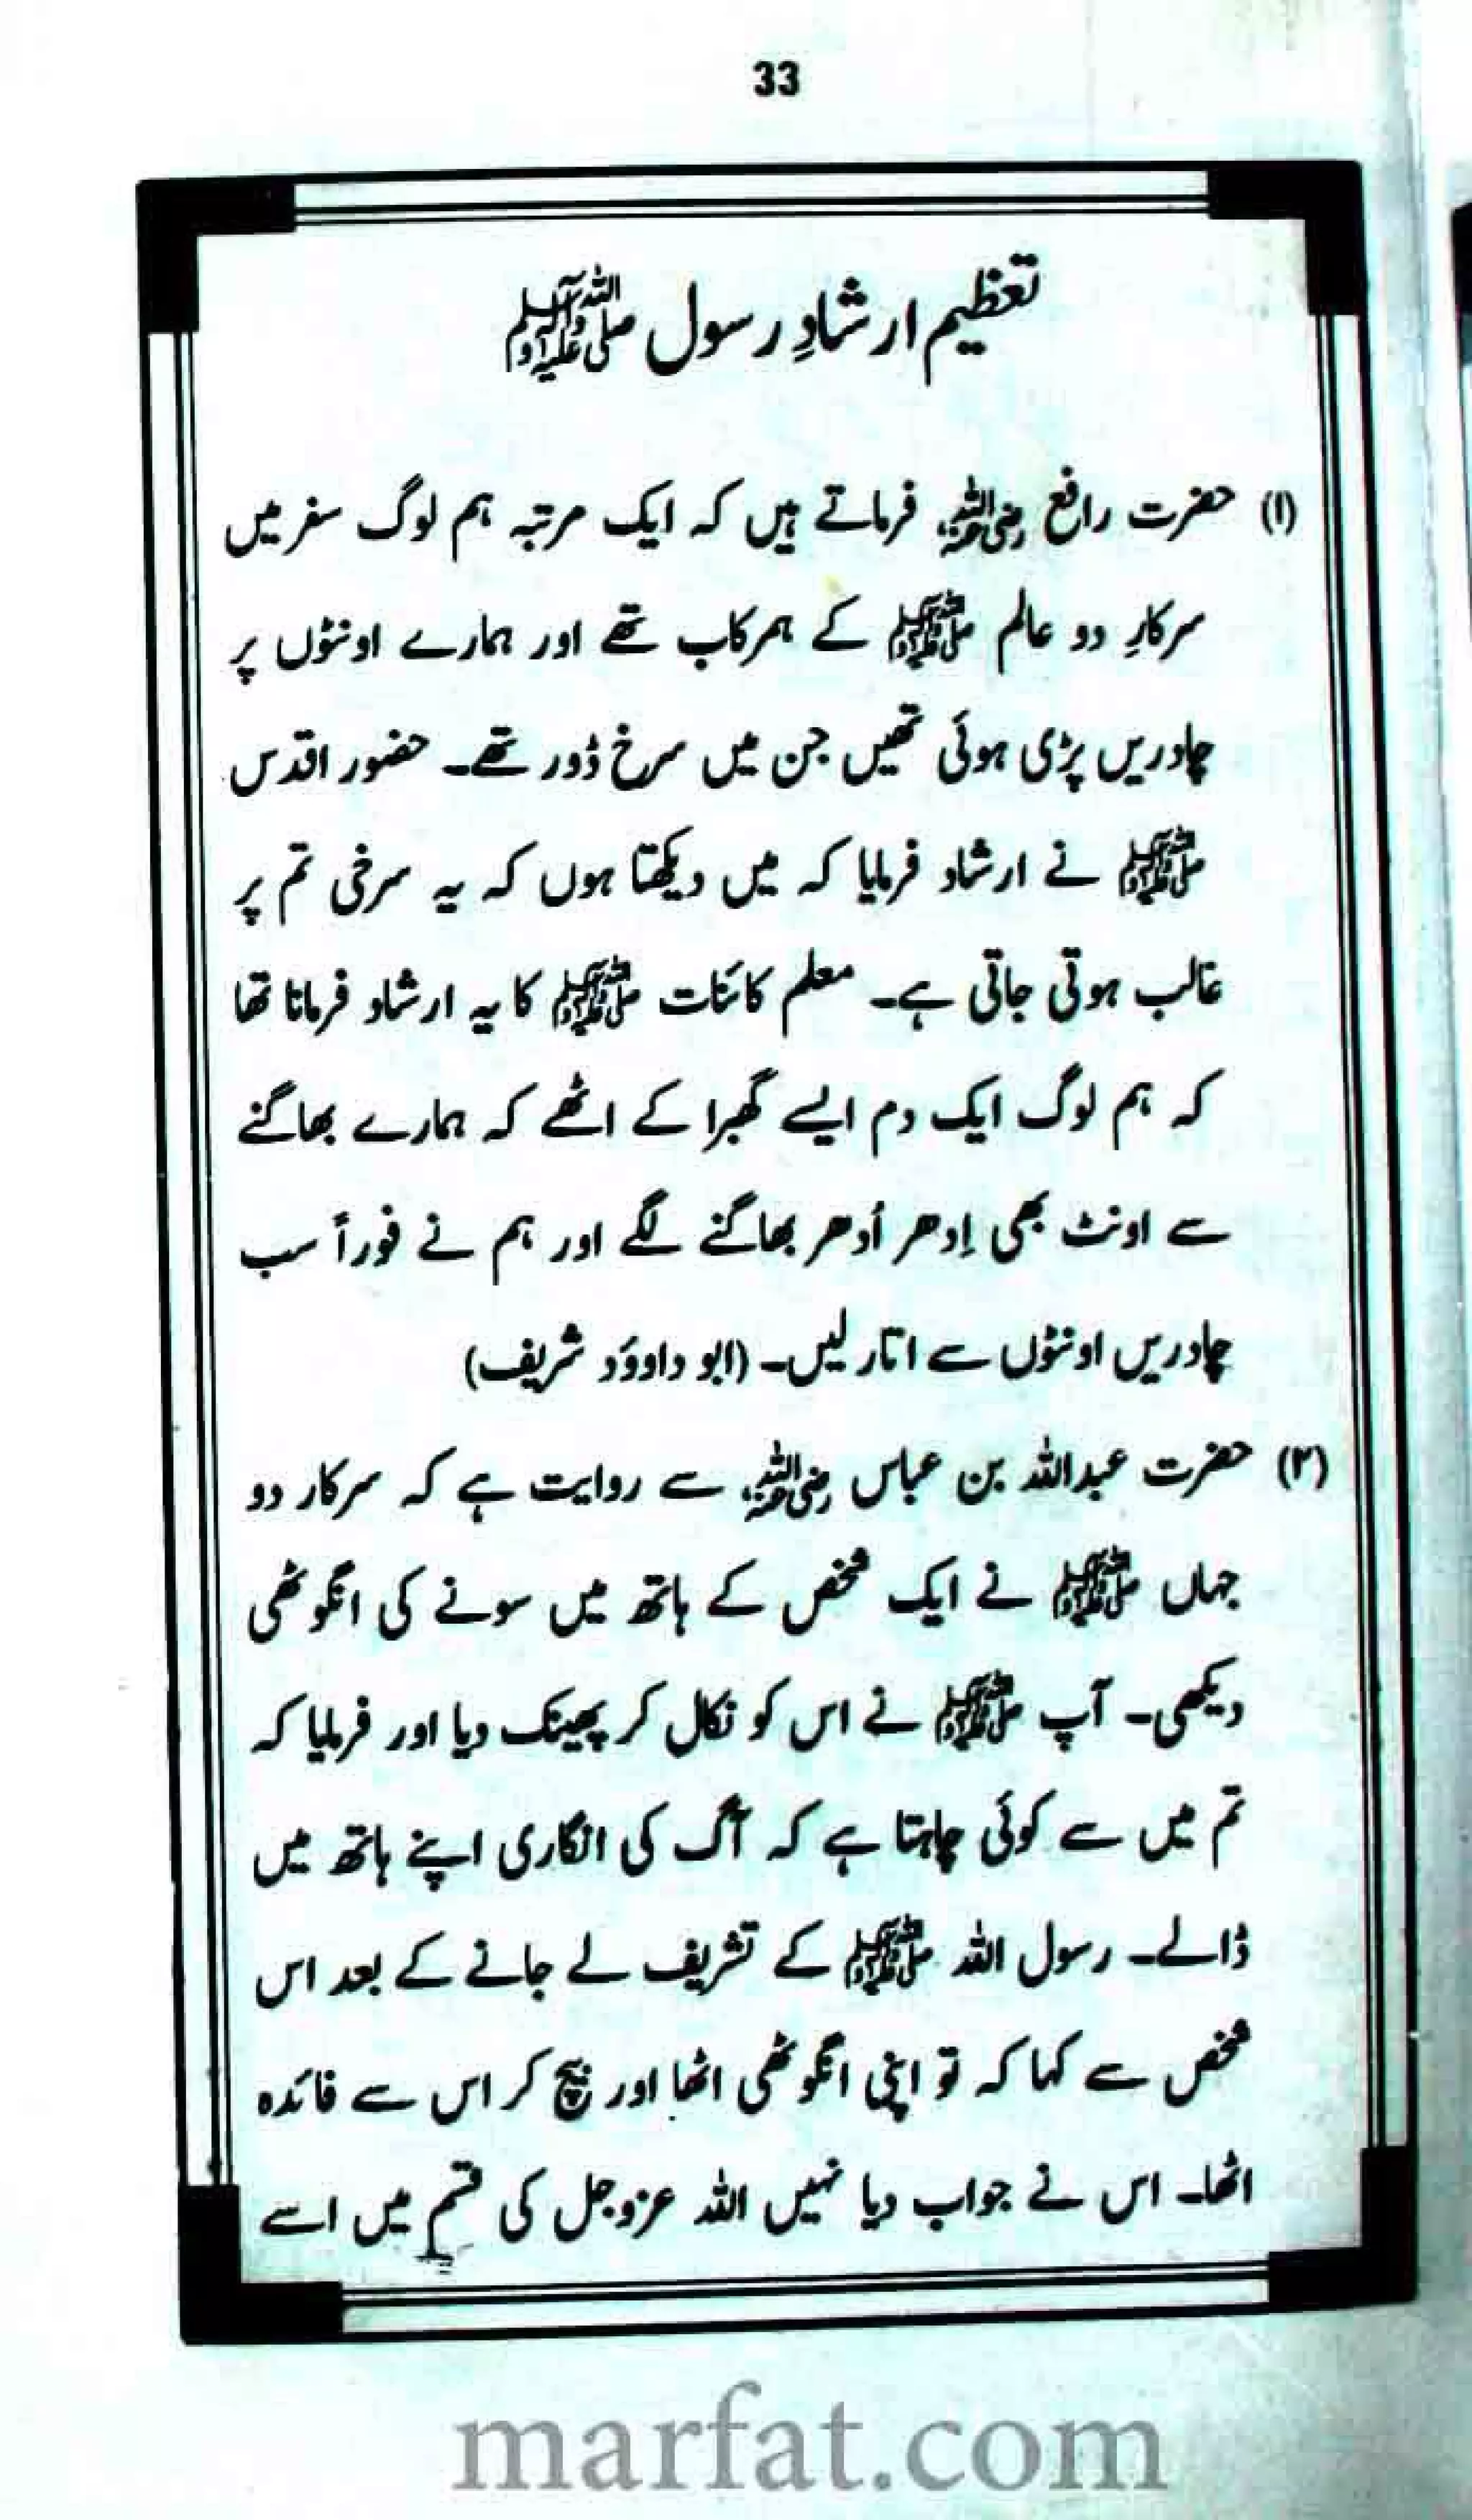 33
تعظیم ارشادِ رسول ﷺ
(۱) حضرت رافع رضی اللہ عنہ فرماتے ہیں کہ ایک مرتبہ ہم لوگ سفر میں
سرکارِ دو عالم ﷺ کے ہمرکاب تھے اور ہمارے اونٹوں پر
چادریں پڑی ہوئی تھیں جن میں سرخ ڈور تھے۔ حضور اقدس
ﷺ نے ارشاد فرمایا کہ میں دیکھتا ہوں کہ یہ سرخی تم پر
غالب ہوتی جاتی ہے۔ معلم کائنات ﷺ کا یہ ارشاد فرمانا تھا
کہ ہم لوگ ایک دم ایسے گھبرا کے اٹھے کہ ہمارے بھاگنے
سے اونٹ بھی اِدھر اُدھر بھاگنے لگے اور ہم نے فوراً سب
چادریں اونٹوں سے اتار لیں۔ (ابو داوٗد شریف)
(۲) حضرت عبداللہ بن عباس رضی اللہ عنہ سے روایت ہے کہ سرکار دو
جہاں ﷺ نے ایک شخص کے ہاتھ میں سونے کی انگوٹھی
دیکھی۔ آپ ﷺ نے اس کو نکال کر پھینک دیا اور فرمایا کہ
تم میں سے کوئی چاہتا ہے کہ آگ کی انگاری اپنے ہاتھ میں
ڈالے۔ رسول اللہ ﷺ کے تشریف لے جانے کے بعد اس
شخص سے کہا کہ تو اپنی انگوٹھی اٹھا اور بیچ کر اس سے فائدہ
اٹھا۔ اس نے جواب دیا نہیں اللہ عزوجل کی قسم میں اسے
marfat.com